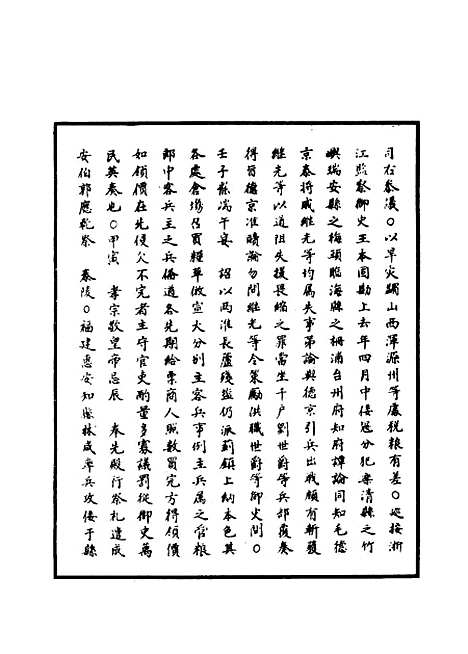 司右參議○以旱災蠲山西渾源州等處稅粮有差○巡按浙
江監察御史王本固勘上去年四月中倭寇分犯樂清縣之竹
嶼瑞安縣之梅頭臨海縣之柵浦台州府知府譚論同知毛德
京參將戚繼光等均属失事第論與德京引兵出戰頗有斬獲
繼光等以道阻失援畏縮之罪當坐千户劉世爵等兵部覆奏
得旨德京准贖論勿問繼光等令策勵洪職世爵等御史問○
壬子龍端午宴 詔以兩淮長蘆殘鹽仍派薊鎮上納本色其
各處倉塲召買糧草做宣大分别主客兵事例主兵属之管粮
郎中客兵主之兵備道各先期給票商人照數買完方得領價
如領價在先侵欠不完者主守官吏酌量多寡議罰從御史萬
民英奏也○甲寅 孝宗敬皇帝忌辰 奉先殿行祭礼遣成
安伯郭應乾祭 泰陵○福建惠安知縣林咸率兵攻倭于縣